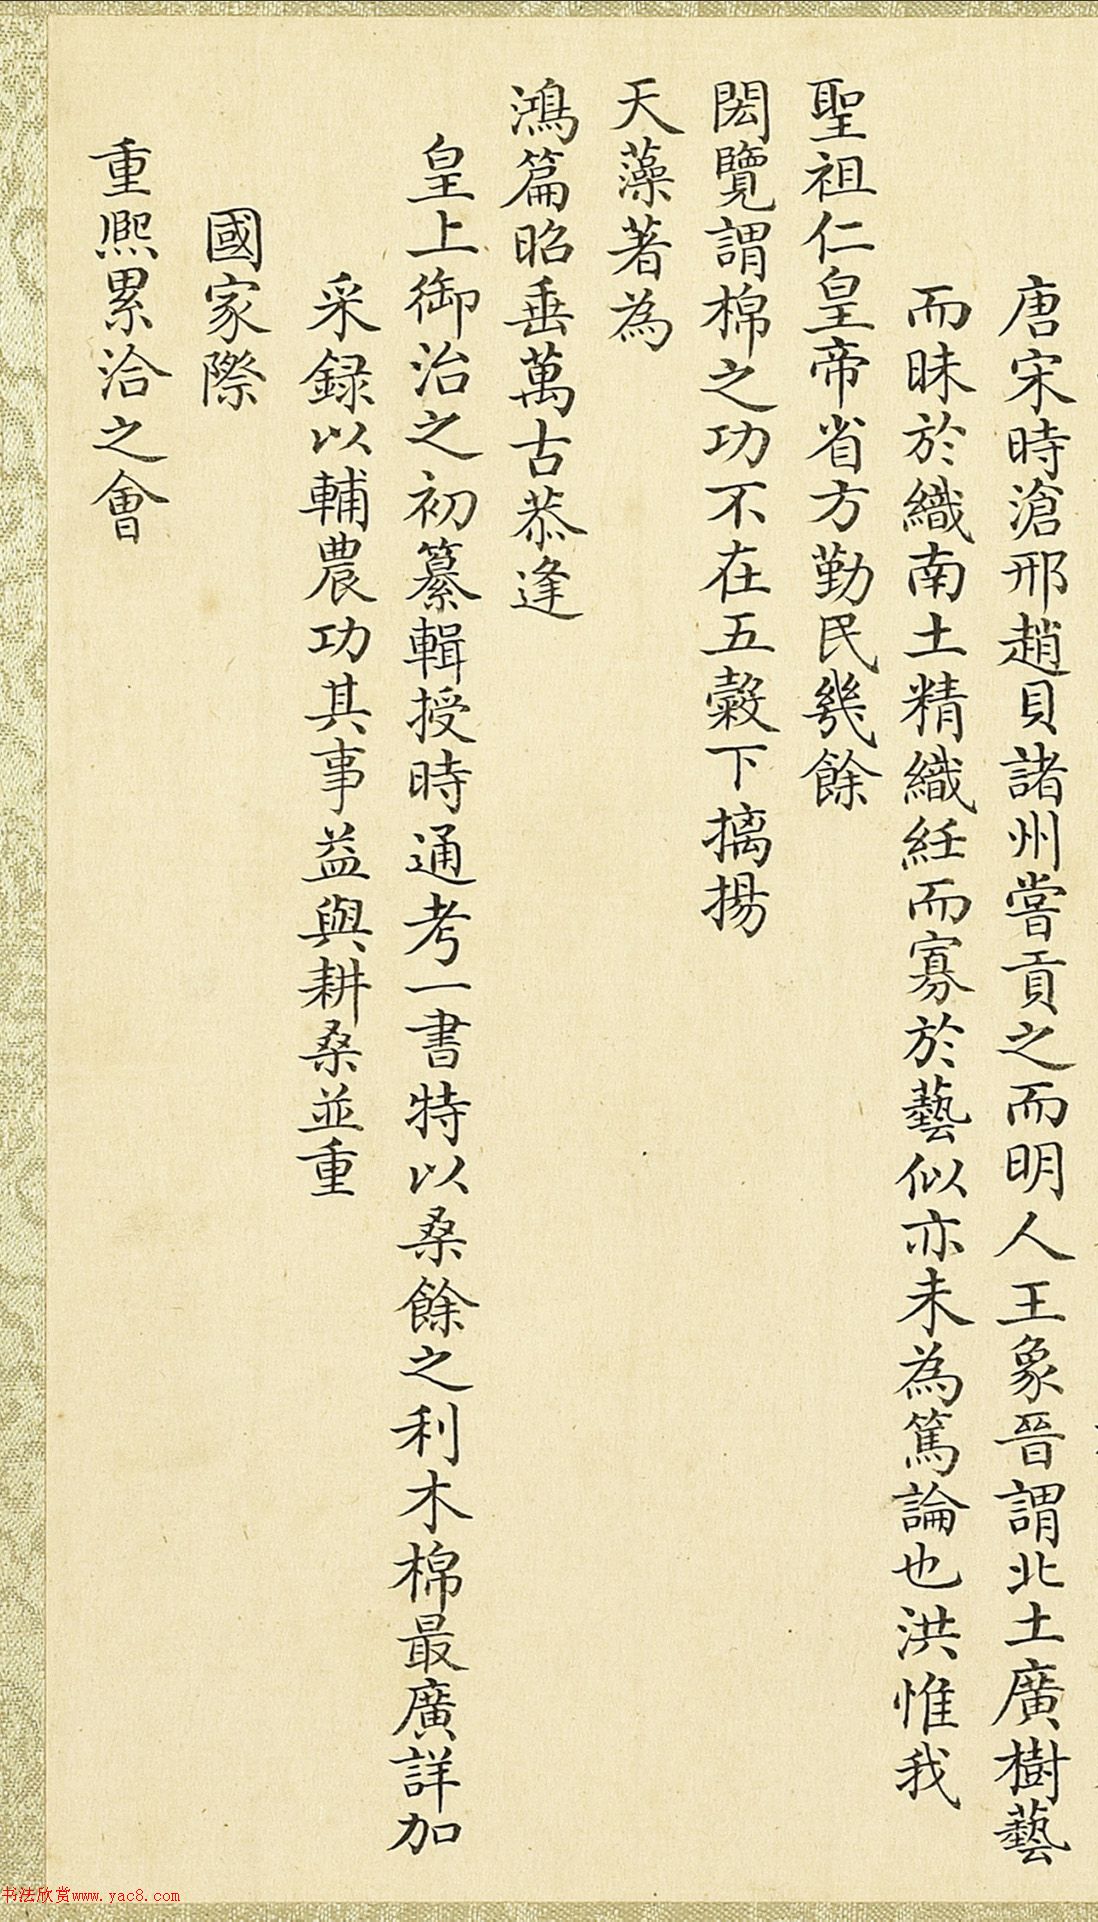 唐宋時滄邢趙貝諸州嘗貢之而明人王象晉謂北土廣樹藝
而昧於織南土精織紝而寡於藝似亦未為篤論也洪惟我
聖祖仁皇帝省方勤民幾餘
閎覽謂棉之功不在五穀下摛揚
天藻著為
鴻篇昭垂萬古恭逢
皇上御治之初纂輯授時通考一書特以桑餘之利木棉最廣詳加
采録以輔農功其事益與耕桑並重
國家際
重熈累洽之會
书法欣赏www.yac8.com